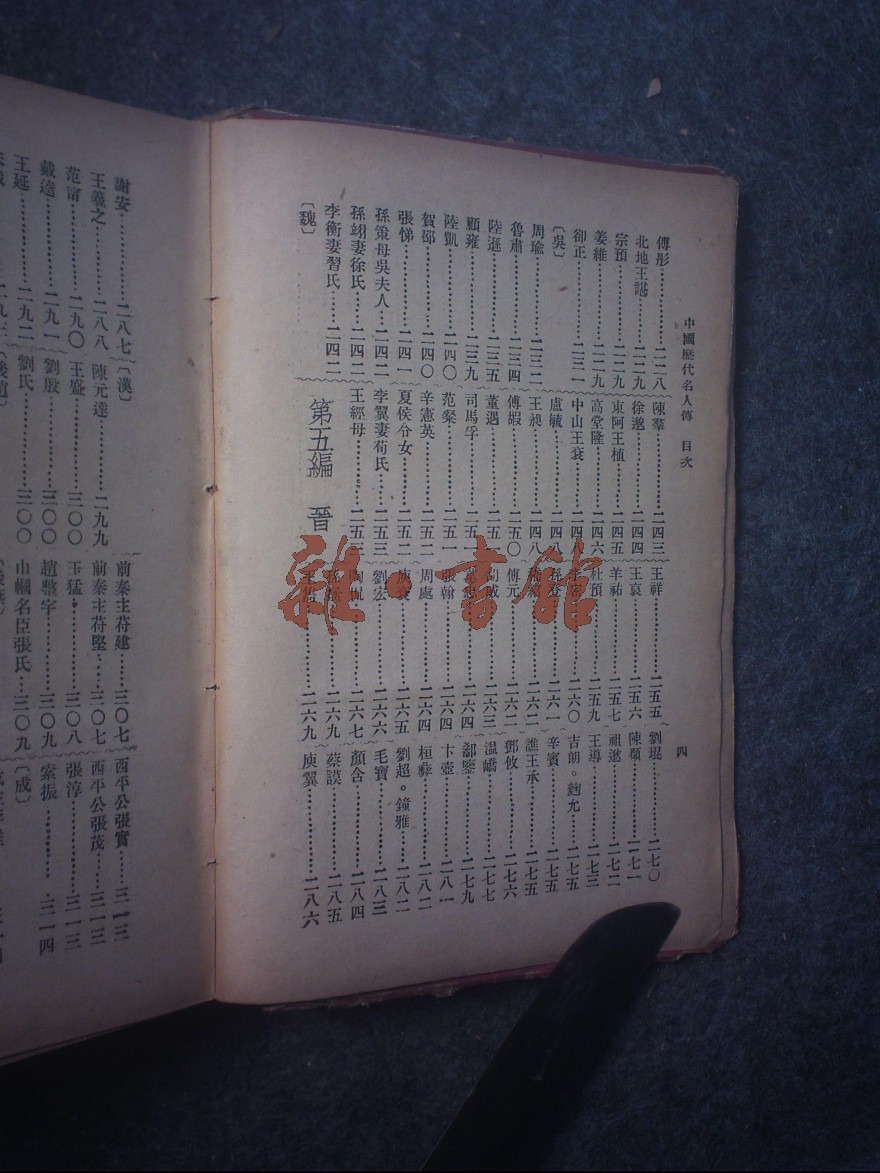 中國歷代名人傳　目次
四
傅彤………二二八
北地王諶………二二九
宗預………二二九
姜維………二二九
郤正………二三一
〔吳〕
周瑜………二三二
魯肅………二三四
陸遜………二三五
顧雍………二三九
陸凱………二四〇
賀邵………二四〇
張悌………二四一
孫策母吳夫人………二四二
孫翊妻徐氏………二四二
李衡妻習氏………二四二
〔魏〕
陳羣………二四三
徐邈………二四四
東阿王植………二四五
高堂隆………二四六
中山王袞………二四八
盧毓
王昶………二四八
傅嘏………二五〇
董遇………二五
司馬孚………二五
范粲………二五一
辛憲英………二五二
夏侯令女………二五二
李翼妻荀氏………二五三
王經母………二五三
第五編　晉
王祥………二五五
王裒………二五六
羊祜………二五七
杜預………二五九
二六〇
二六一
二六二
傅元………二六二
二六三
二六四
張翰
周處………二六四
庾袞………二六五
劉宏………二六六
陶侃………二六七
二六九
二六九
劉琨………二七〇
陳頵………二七一
祖逖………二七二
王導………二七三
吉朗。麴允………二七五
辛賓………二七五
譙王承………二七五
鄧攸………二七六
溫嶠………二七七
郗鑒………二七九
卞壺………二八一
桓彝………二八二
劉超。鐘雅………二八二
毛寶………二八三
顏含………二八四
蔡謨………二八五
庾翼………二八六
謝安………二八七
王羲之………二八八
范甯………二九〇
戴逵………二九一
王延………二九二
〔漢〕
陳元達………二九九
王盛………三〇〇
劉殷………三〇〇
劉氏………三〇〇
〔後趙〕
前秦主苻建………三〇七
前秦主苻堅………三〇七
王猛………三〇八
趙整字………三〇九
巾幗名臣張氏………三〇九
西平公張寔………三一三
西平公張茂………三一三
張淳………三一三
索振………三一四
〔成〕
雜·書館